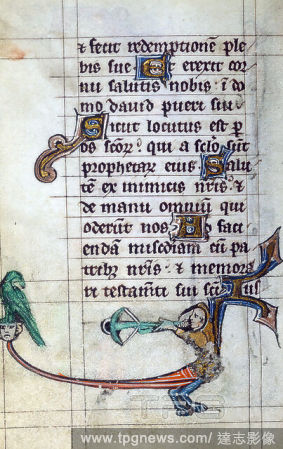 & fecit redemptionē ple
bis sue Et erexit cor
nu salutis nobis · ī do
mo dauid pueri sui
Sicut locutus est p
os scōr · qui a sclo sūt
prophetar eius Salu
tē ex inimicis nrīs · &
de manu omniū qui
oderūt nos Ad face
endā misediam cū pa
tribz nrīs · & memora
ri testamēti sui sci Ius
www.tpgnews.com/達志影像